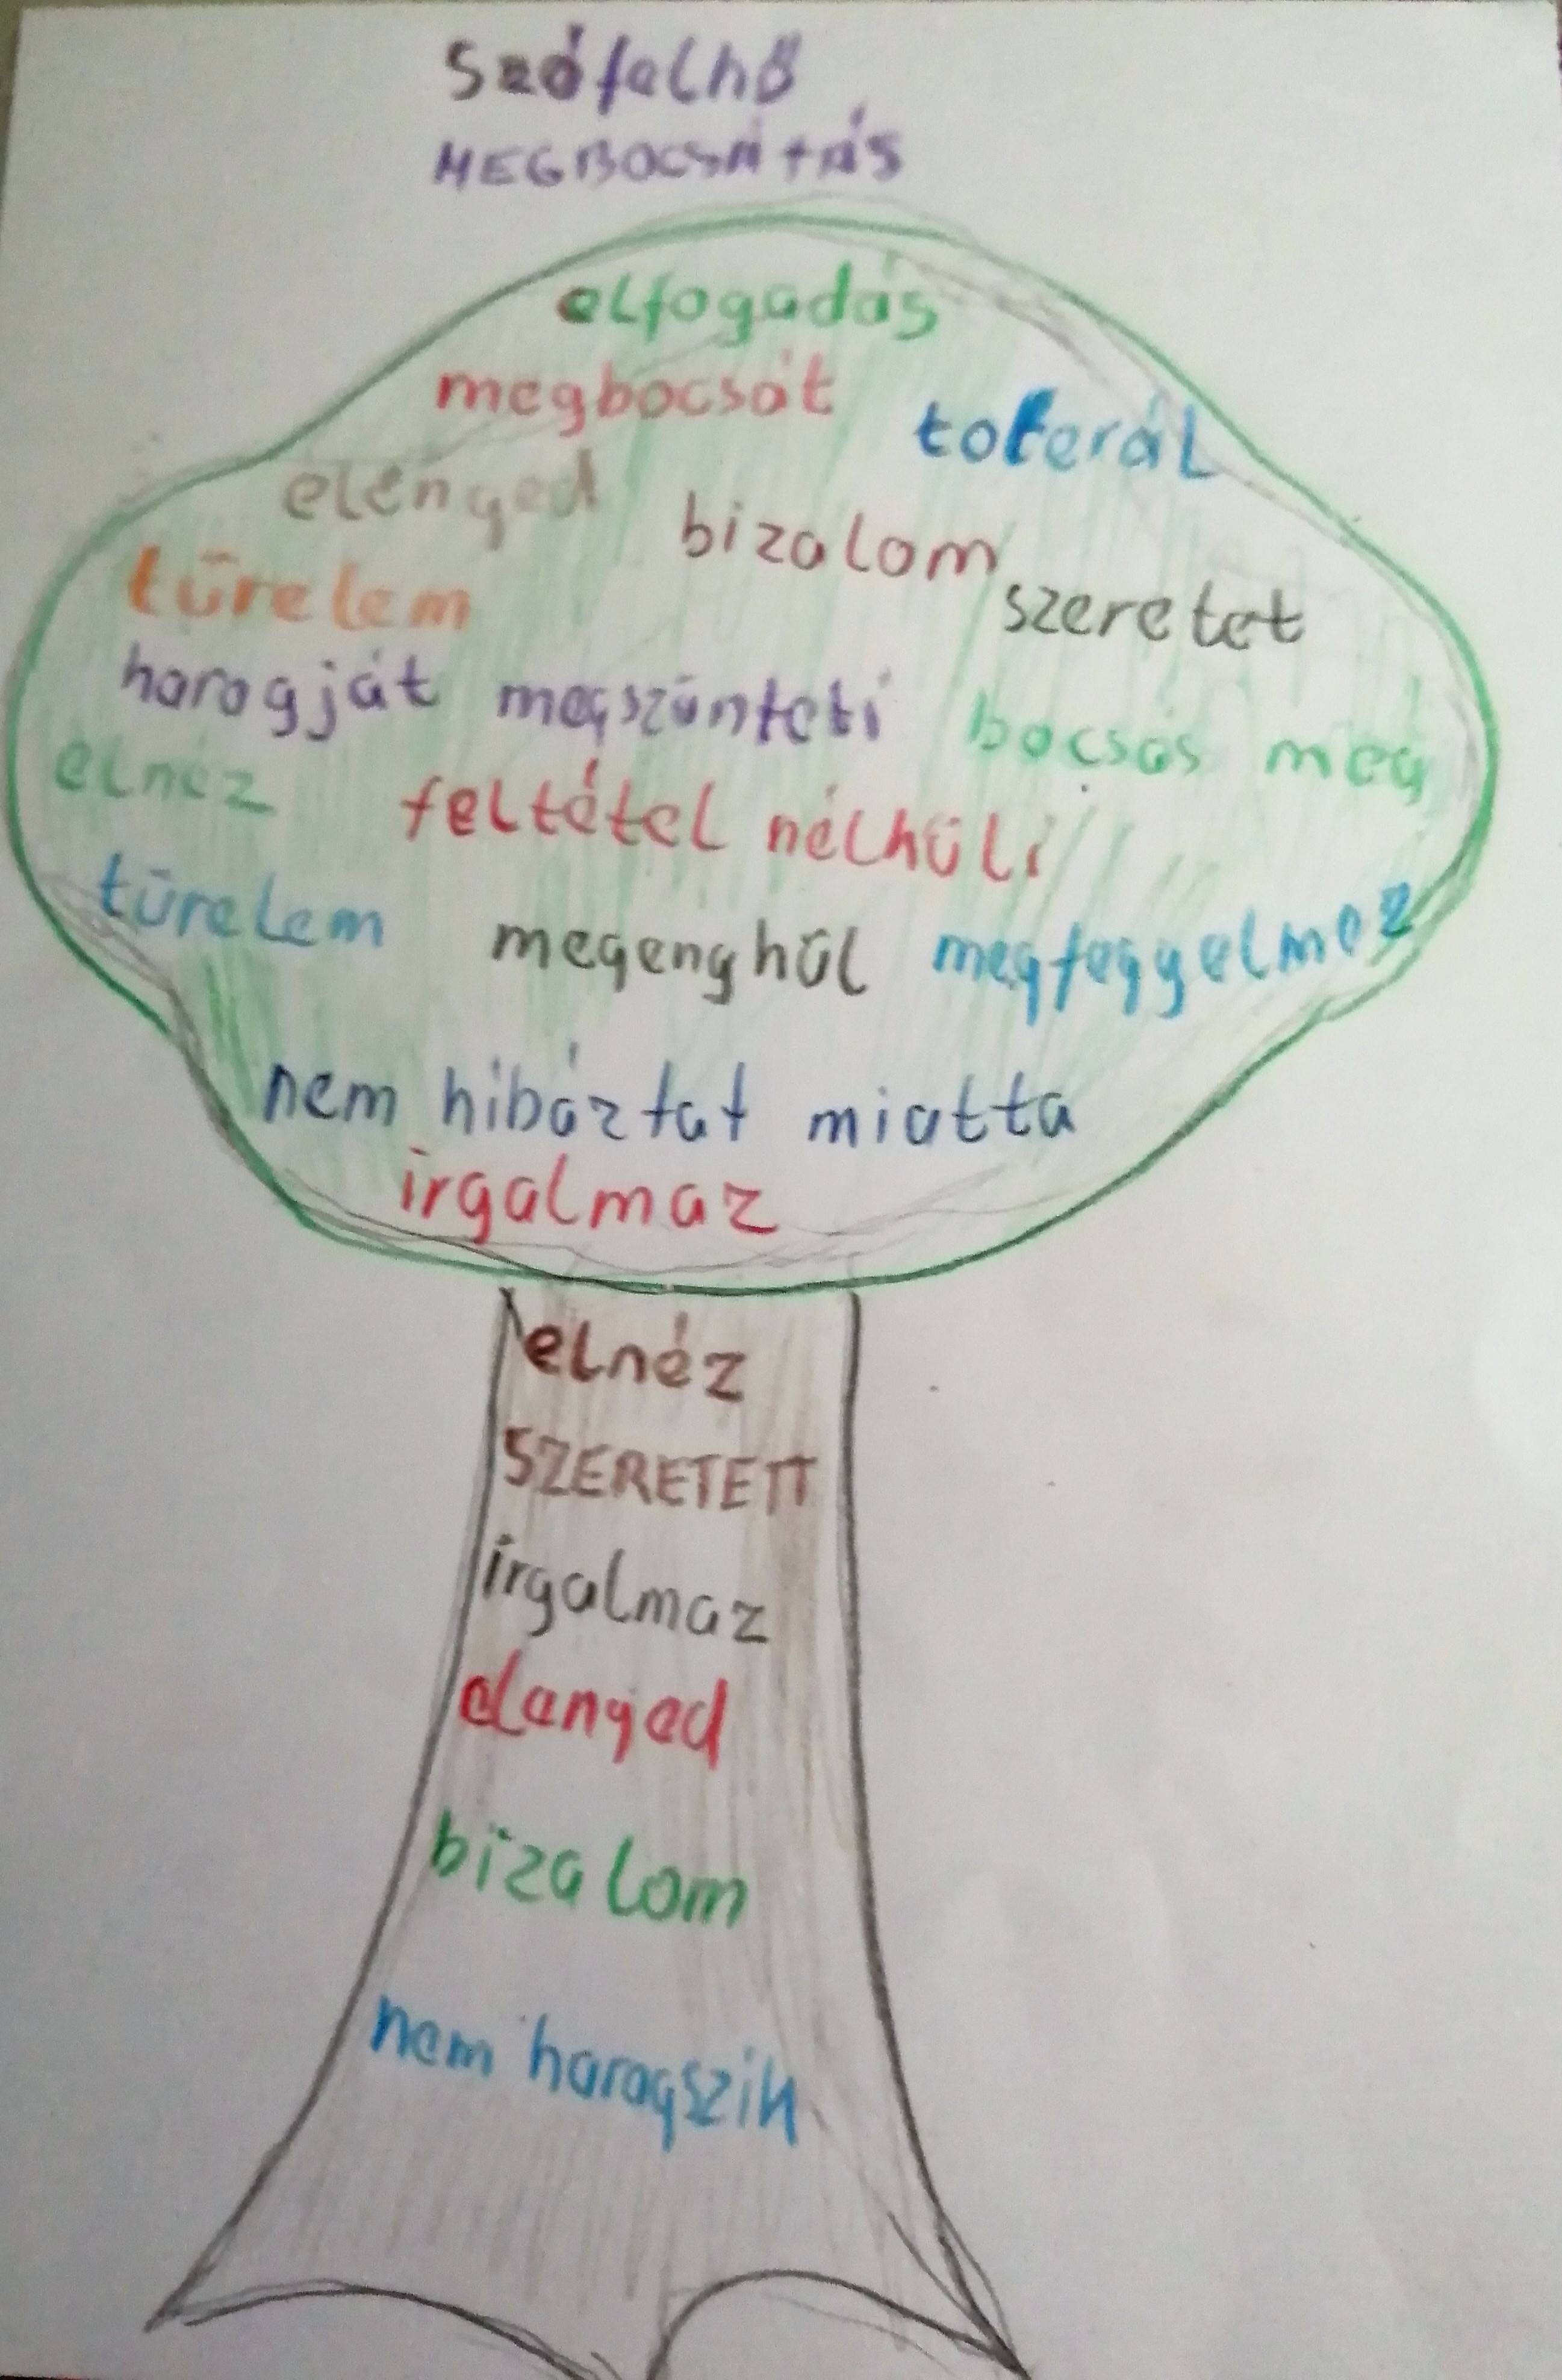 Szófelhő
MEGBOCSÁtÁS
elfogadás
megbocsát
tolerál
elenged
bizalom
türelem
szeretet
haragját megszünteti
bocsás meg
elnéz
feltétel nélküli
türelem
megenghűl
megfeggyelmez
nem hibáztat miatta
irgalmaz
elnéz
SZERETETT
irgalmaz
elenged
bizalom
nem haragszik